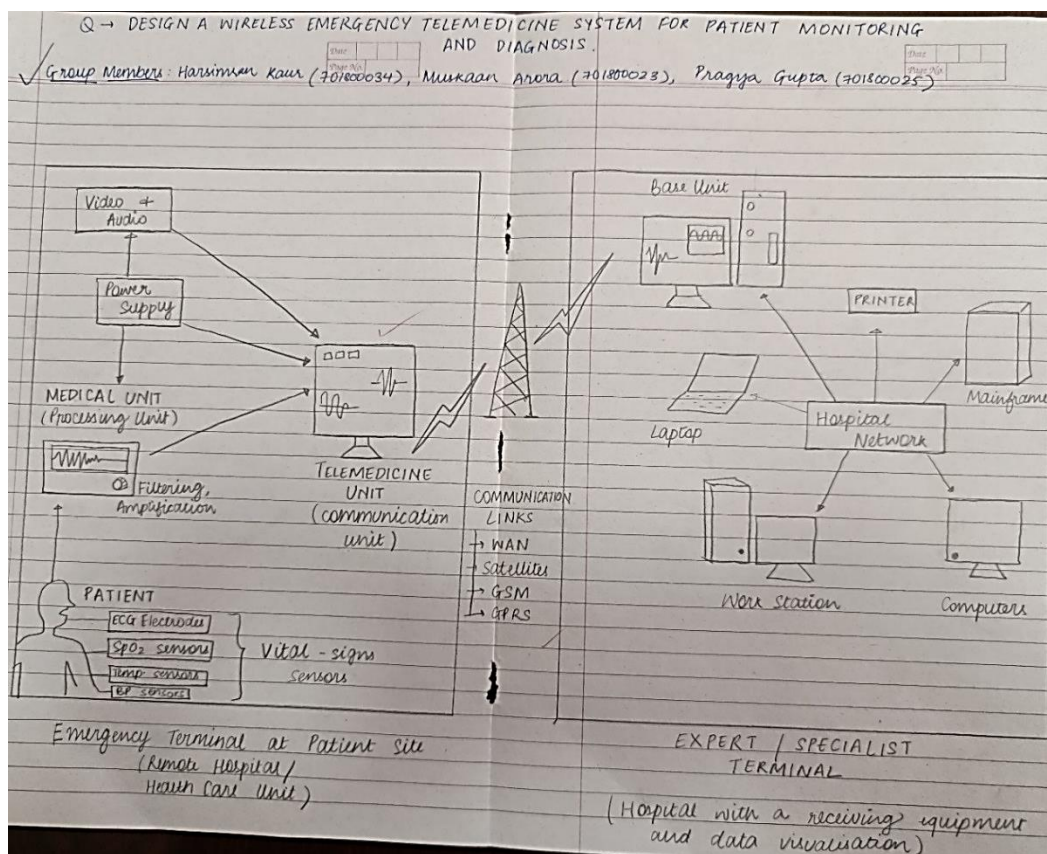 Q → DESIGN A WIRELESS EMERGENCY TELEMEDICINE SYSTEM FOR PATIENT MONITORING
AND DIAGNOSIS.
Date
Page No.
Date
Page No.
Group Members: Harsimran Kaur (701800034), Muskaan Arora (701800023), Pragya Gupta (701800025)
Video +
Audio
Power
Supply
MEDICAL UNIT
(Processing Unit)
Filtering,
Amplification
TELEMEDICINE
UNIT
(communication
unit)
PATIENT
ECG Electrodes
SpO2 sensors
Temp sensors
BP sensors
Vital-signs
sensors
Emergency Terminal at Patient Site
(Remote Hospital/
Health Care Unit)
COMMUNICATION
LINKS
→ WAN
→ Satellites
→ GSM
→ GPRS
Base Unit
PRINTER
Mainframe
Laptop
Hospital
Network
Work Station
Computers
EXPERT / SPECIALIST
TERMINAL
(Hospital with a receiving equipment
and data visualisation)